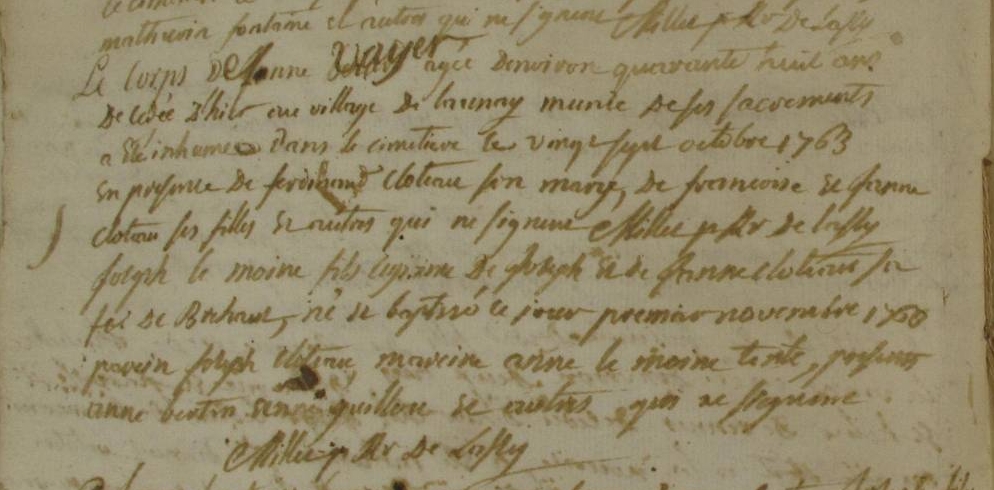 mathurin fontaine et autres qui ne signent Millet p Rr De Lassy
Le Corps De Janne Voyer agee Denviron quarante huit ans
Decedée D'hier au village De launay munie De ses sacrements
a été inhumee Dans le cimetiere le vingt sept octobre 1763
En presence De ferdinand Cloteau son mary, De francoise et Janne
Cloteau ses filles et autres qui ne signent Millet p Rr De Lassy
Joseph le moine fils legitime De Joseph et de Janne Cloteau sa
fe De , né et baptisé ce jour premier novembre
parein Joseph Cloteau mareine anne le moine tente, presents
anne bertin guilloux et autres qui ne signent
Millet p Rr De Lassy